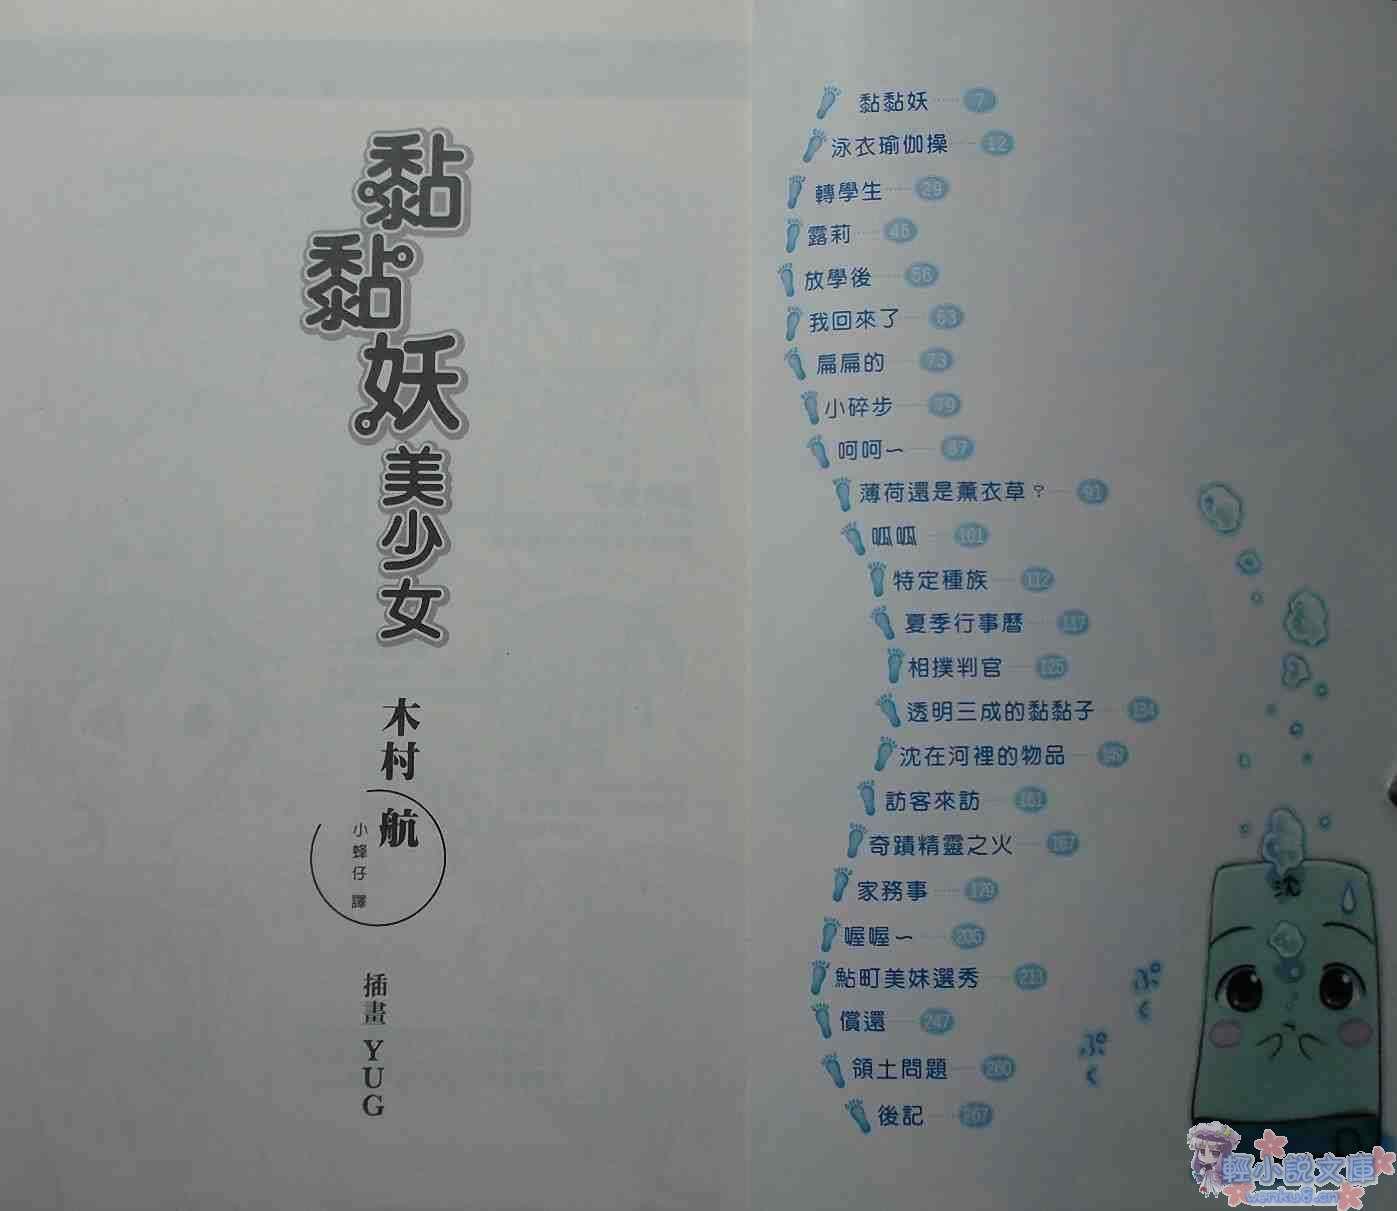 黏黏妖
美少女
木村 航
小蜂仔 譯
插畫 YUG
黏黏妖 7
泳衣瑜伽操 12
轉學生 29
露莉 46
放學後 56
我回來了 63
扁扁的 73
小碎步 79
呵呵～ 87
薄荷還是薰衣草? 91
呱呱 101
特定種族 112
夏季行事曆 117
相撲判官 125
透明三成的黏黏子 134
沈在河裡的物品
訪客來訪 161
奇蹟精靈之火 167
家務事 179
喔喔～ 205
鮎町美妹選秀 211
償還 247
領土問題 260
後記 267
沈
ぷく
ぷく
輕小說文庫
wenku8.cn